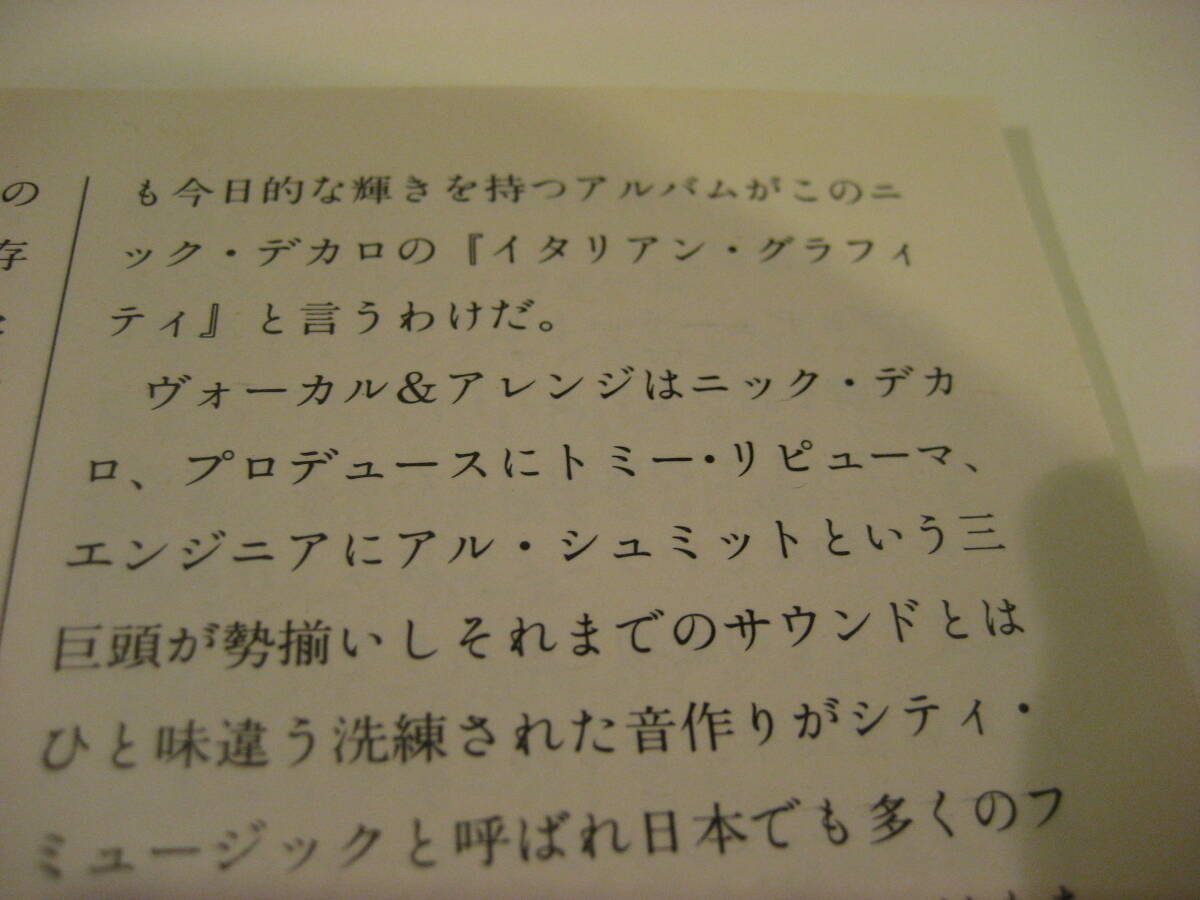 も今日的な輝きを持つアルバムがこのニ
ック・デカロの『イタリアン・グラフィ
ティ』と言うわけだ。
ヴォーカル&アレンジはニック・デカ
ロ、プロデュースにトミー・リピューマ、
エンジニアにアル・シュミットという三
巨頭が勢揃いしそれまでのサウンドとは
ひと味違う洗練された音作りがシティ・
ミュージックと呼ばれ日本でも多くのフ
の
存